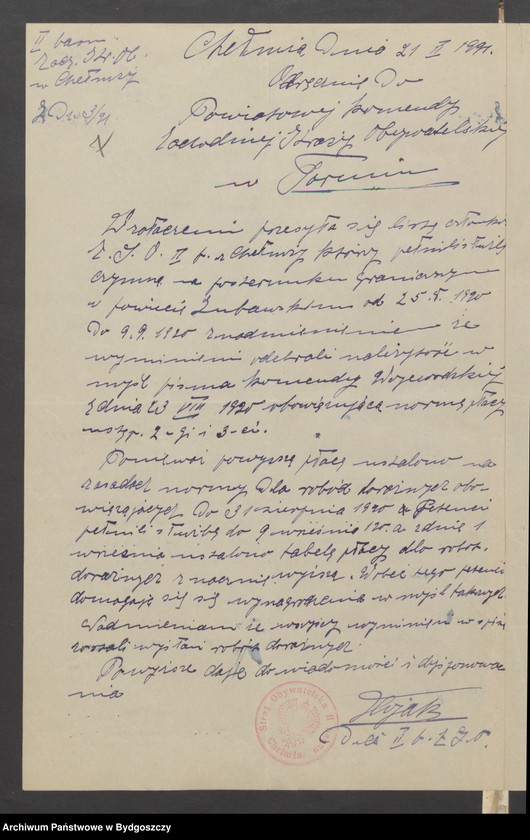 II baon
Zach. Str. Ob.
w Chełmży
Chełmża Dnia 21 II 1921.
Do
Powiatowej Komendy
Zachodniej Straży Obywatelskiej
w Toruniu
W załączeniu przesyła się listę członków
Z. S. O. II b. z Chełmży którzy pełnili służbę
czynną na posterunku granicznym
w powiecie Lubawskim od 25.8. 1920
do 9.9. 1920 z nadmienieniem że
wymienieni odebrali należytość w
myśl pisma Komendy Wojewódzkiej
z dnia 23 VIII 1920 obowiązującą normę płacy
ustęp. 2-gi i 3-ci.
Ponieważ powyższą płacę ustalono na
zasadzie normy dla robót doraźnych obo-
wiązujących do 31 sierpnia 1920 a Petenci
pełnili służbę do 9 września 20. a z dniem 1
września ustalono tabelę płacy dla robot.
doraźnych znacznie wyższą. Wobec tego petenci
domagają się wynagrodzenia w myśl takowych
Nadmieniam że wszyscy wymienieni w spisie
zostali wysłani robót doraźnych.
Powyższe daję do wiadomości i dysponowa
nia
Straż Obywatelska II
Chełmża
D-ca II b. Z. S. O.
Archiwum Państwowe w Bydgoszczy